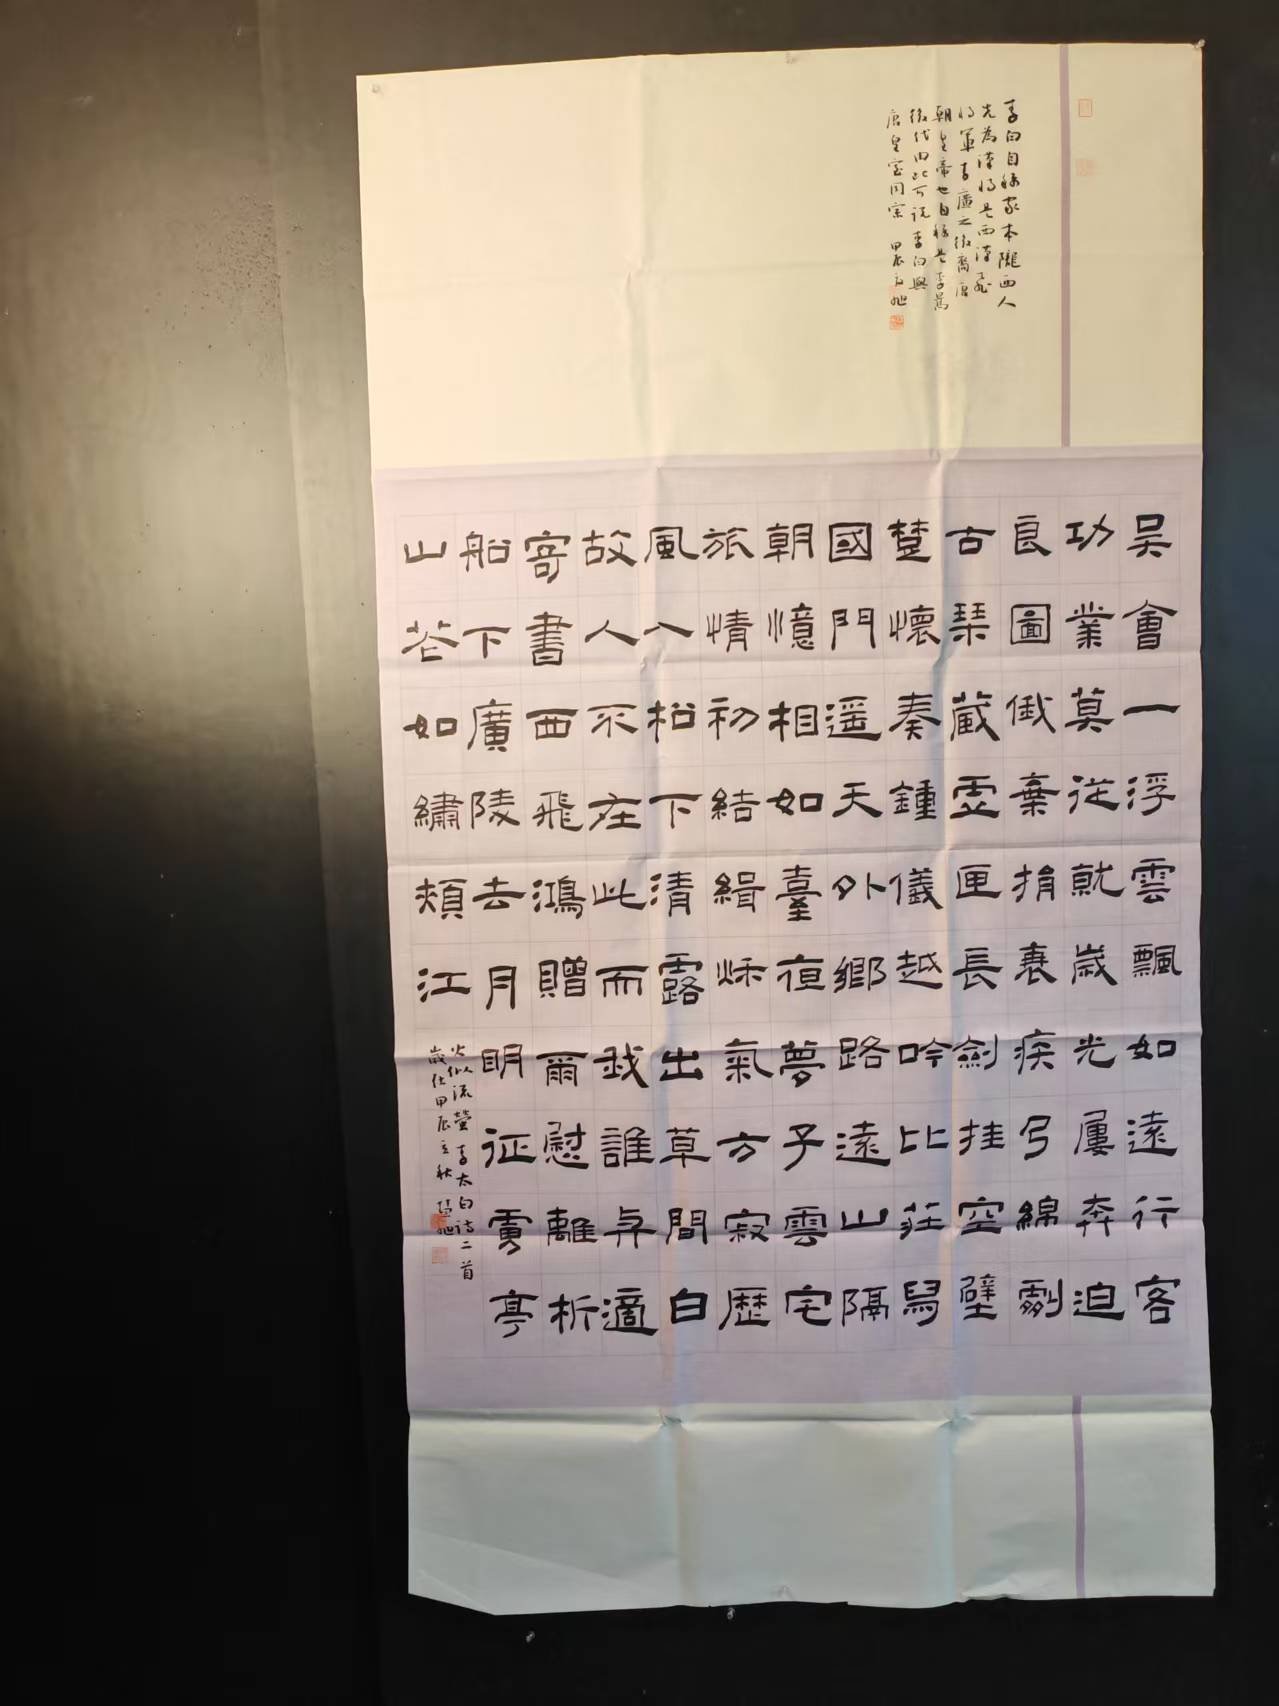 李白自稱家本隴西人
先為漢將是西漢飛
將軍李廣之後裔唐
朝皇帝也自稱是李暠
後代由此可说李白與
唐皇室同宗 甲辰
吳會一浮雲飄如遠行客
功業莫從就歲光屢奔迫
良圖俄棄捐衰疾乃綿劇
古琴藏虛匣長劍挂空壁
楚懷奏鍾儀越吟比莊舄
國門遥天外鄉路遠山隔
朝憶相如臺夜夢子雲宅
旅情初結緝秌氣方寂歷
風入松下清露出草間白
故人不在此而我誰與適
寄書西飛鴻贈爾慰離析
船下廣陵去月明征虜亭
山花如繡頰江
火似流螢 李太白詩二首
歲在甲辰立秋